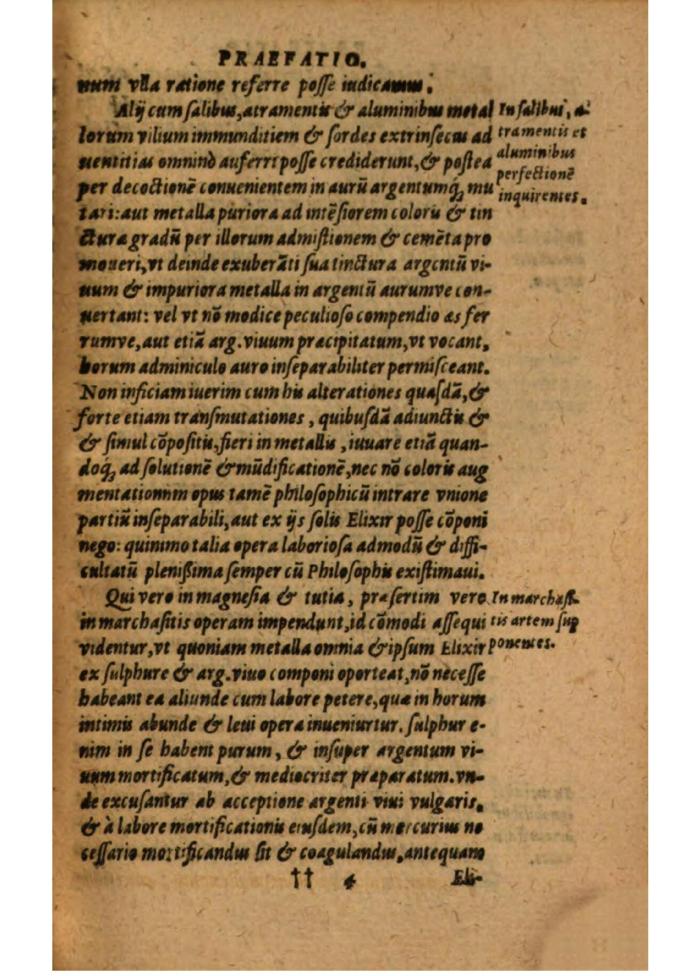 PRAEFATIO.
num vlla ratione referre posse iudicamus.
Alij cum salibus, atramentis & aluminibus metal
lorum vilium immunditiem & sordes extrinsecus ad
uentitias omninò auferri posse crediderunt, & postea
per decoctionē conuenientem in aurū argentumq; mu
tari: aut metalla puriora ad intēsiorem coloris & tin
cturæ gradū per illorum admistionem & cemēta pro
moueri, vt deinde exuberāti sua tinctura argentū vi-
uum & impuriora metalla in argentū aurumve con-
uertant: vel vt nō modice peculioso compendio æs fer
rumve, aut etiā arg. viuum præcipitatum, vt vocant,
horum adminiculo auro inseparabiliter permisceant.
Non inficiam iuerim cum his alterationes quasdā, &
forte etiam transmutationes, quibusdā adiunctis &
& simul cōpositis, fieri in metallis, iuuare etiā quan-
doq; ad solutionē & mūdificationē, nec nō coloris aug
mentationem opus tamē philosophicū intrare vnione
partiū inseparabili, aut ex ijs solis Elixir posse cōponi
nego: quinimo talia opera laboriosa admodū & diffi-
cultatū plenißima semper cū Philosophis existimaui.
Qui vero in magnesia & tutia, præsertim vero
in marchasitis operam impendunt, id cōmodi assequi
videntur, vt quoniam metalla omnia & ipsum Elixir
ex sulphure & arg. viuo componi oporteat, nō necesse
habeant ea aliunde cum labore petere, quæ in horum
intimis abunde & leui opera inueniurtur. sulphur e-
nim in se habent purum, & insuper argentum vi-
uum mortificatum, & mediocriter præparatum. vn-
de excusantur ab acceptione argenti viui vulgaris,
& à labore mortificationis eiusdem, cū mercurius ne
cessario mortificandus sit & coagulandus, antequam
†† 4 Eli-
In salibus, a-
tramentis et
aluminibus
perfectionē
inquirentes.
In marchasi-
tis artem sup
ponentes.